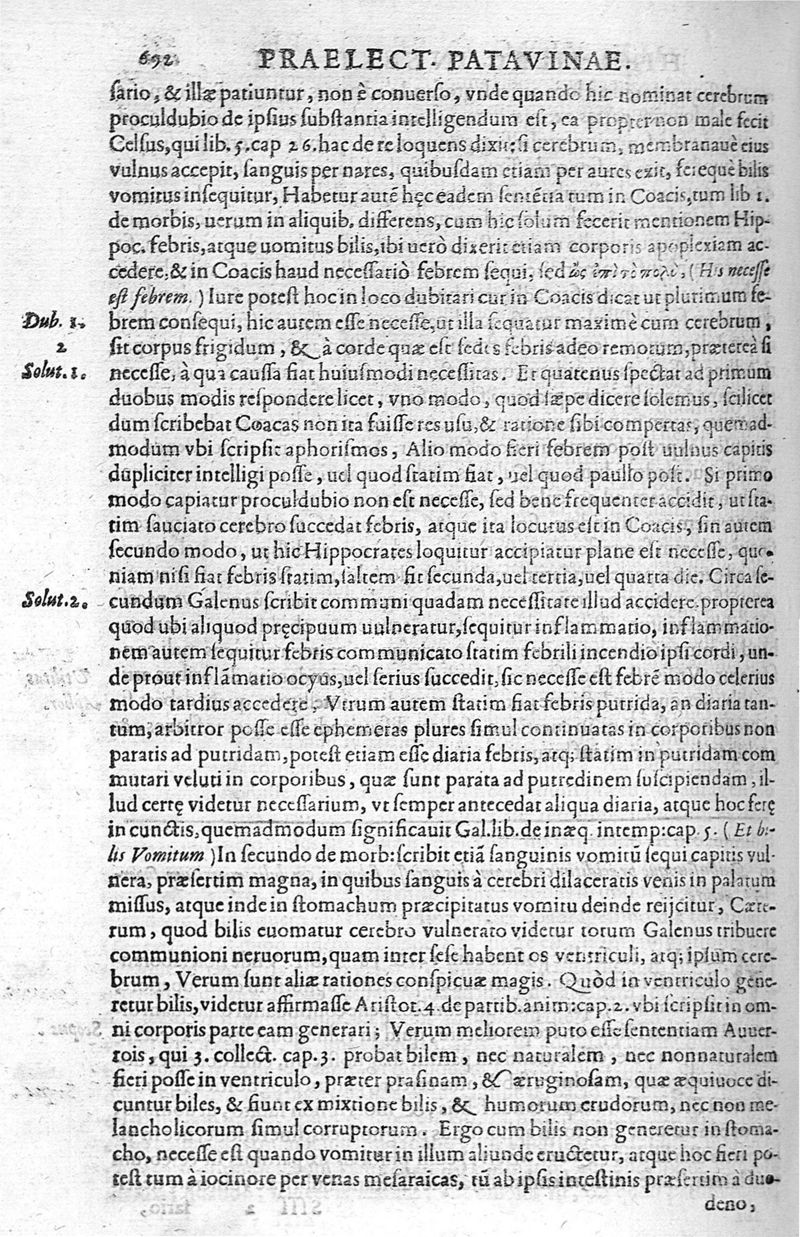 692 PRAELECT. PATAVINAE.
ſario, & illæ patiuntur, non è conuerſo, vnde quando hic nominat cerebrum
proculdubio de ipſius ſubſtantia intelligendum eſt, ea propter non male fecit
Celſus, qui lib. 5. cap 26. hac de re loquens dixit: ſi cerebrum, membranauè eius
vulnus accepit, ſanguis per nares, quibuſdam etiam per aures exit, ferequè bilis
vomitus inſequitur, Habetur autē hęc eadem ſentētia tum in Coacis, tum lib 1.
de morbis, uerum in aliquib. differens, cum hic ſolum fecerit mentionem Hip-
poc. febris, atque uomitus bilis, ibi uerò dixerit etiam corporis apoplexiam ac-
cedere, & in Coacis haud neceſſariò febrem ſequi, ſed ὡς ἐπὶ τὸ πολὺ, (His neceſſe
eſt febrem.) Iure poteſt hoc in loco dubitari cur in Coacis dicat ut plurimum fe-
Dub. 1. brem conſequi, hic autem eſſe neceſſe, ut illa ſequatur maximè cum cerebrum,
2 ſit corpus frigidum, & à corde quæ eſt ſedes febris adeo remotum, prætereà ſi
Solut. 1. neceſſe, à qua cauſſa fiat huiuſmodi neceſſitas. Et quatenus ſpectat ad primum
duobus modis reſpondere licet, vno modo, quod ſæpe dicere ſolemus, ſcilicet
dum ſcribebat Coacas non ita fuiſſe res uſu, & ratione ſibi compertas, quemad-
modum vbi ſcripſit aphoriſmos, Alio modo fieri febrem poſt uulnus capitis
dupliciter intelligi poſſe, uel quod ſtatim fiat, uel quod paullo poſt. Si primo
modo capiatur proculdubio non eſt neceſſe, ſed bene frequenter accidit, ut ſta-
tim ſauciato cerebro ſuccedat febris, atque ita locutus eſt in Coacis, ſin autem
ſecundo modo, ut hic Hippocrates loquitur accipiatur plane eſt neceſſe, quo-
niam niſi fiat febris ſtatim, ſaltem fit ſecunda, uel tertia, uel quarta die. Circa ſe-
Solut. 2. cundum Galenus ſcribit communi quadam neceſſitate illud accidere. propterea
quod ubi aliquod pręcipuum uulneratur, ſequitur inflammatio, inflammatio-
nem autem ſequitur febris communicato ſtatim febrili incendio ipſi cordi, un-
de prout inflāmatio ocyus, uel ſerius ſuccedit, ſic neceſſe eſt febrē modo celerius
modo tardius accedere. Vtrum autem ſtatim fiat febris putrida, an diaria tan-
tum, arbitror poſſe eſſe ephemeras plures ſimul continuatas in corporibus non
paratis ad putridam, poteſt etiam eſſe diaria febris, atq; ſtatim in putridam com
mutari veluti in corporibus, quæ ſunt parata ad putredinem ſuſcipiendam, il-
lud certę videtur neceſſarium, vt ſemper antecedat aliqua diaria, atque hoc ferę
in cunctis, quemadmodum ſignificauit Gal. lib. de inæq. intemp: cap. 5. (Et bi-
lis Vomitum) In ſecundo de morb: ſcribit etiā ſanguinis vomitū ſequi capitis vul-
nera, præſertim magna, in quibus ſanguis à cerebri dilaceratis venis in palatum
miſſus, atque inde in ſtomachum præcipitatus vomitu deinde reijcitur, Cæte-
rum, quod bilis euomatur cerebro vulnerato videtur totum Galenus tribuere
communioni neruorum, quam inter ſeſe habent os ventriculi, atq; ipſum cere-
brum, Verum ſunt aliæ rationes conſpicuæ magis. Quòd in ventriculo gene-
retur bilis, videtur affirmaſſe Ariſtot. 4. de partib. anim: cap. 2. vbi ſcripſit in om-
ni corporis parte eam generari; Verum meliorem puto eſſe ſententiam Auuer-
rois, qui 3. collect. cap. 3. probat bilem, nec naturalem, nec nonnaturalem
fieri poſſe in ventriculo, præter praſinam, & æruginoſam, quæ æquiuoce di-
cuntur biles, & fiunt ex mixtione bilis, & humorum crudorum, nec non me-
lancholicorum ſimul corruptorum. Ergo cum bilis non generetur in ſtoma-
cho, neceſſe eſt quando vomitur in illum aliunde eructetur, atque hoc fieri po-
teſt tum à iocinore per venas meſaraicas, tū ab ipſis inteſtinis præſertim à duo-
deno,